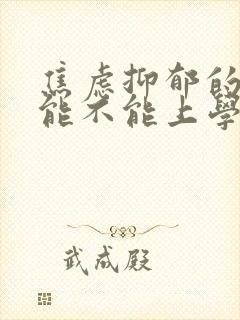 焦虑抑郁的
能不能上學
武成殿